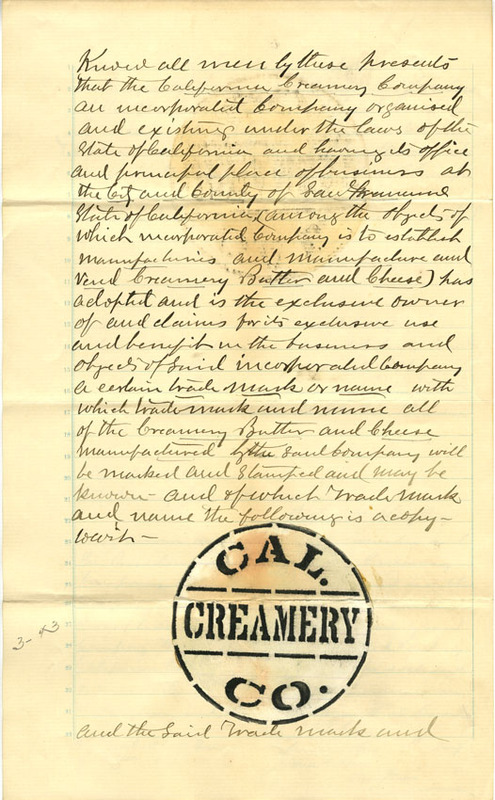 Know all men by these presents
that the California Creamery Company
an incorporated Company organised
and existing under the laws of the
State of California and having its office
and principal place of business at
the City and County of San Francisco
State of California, (among the objects of
which incorporated Company is to establish
manufactories and manufacture and
vend Creamery Butter and Cheese) has
adopted and is the exclusive owner
of and claims for its exclusive use
and benefit in the business and
objects of said incorporated Company
a certain trade mark or name with
which trade mark and name all
of the Creamery Butter and Cheese
manufactured by the said Company will
be marked and stamped and may be
known - and of which trade mark
and name the following is a copy -
towit -
CAL.
CREAMERY
CO.
3-43
and the said trade mark and